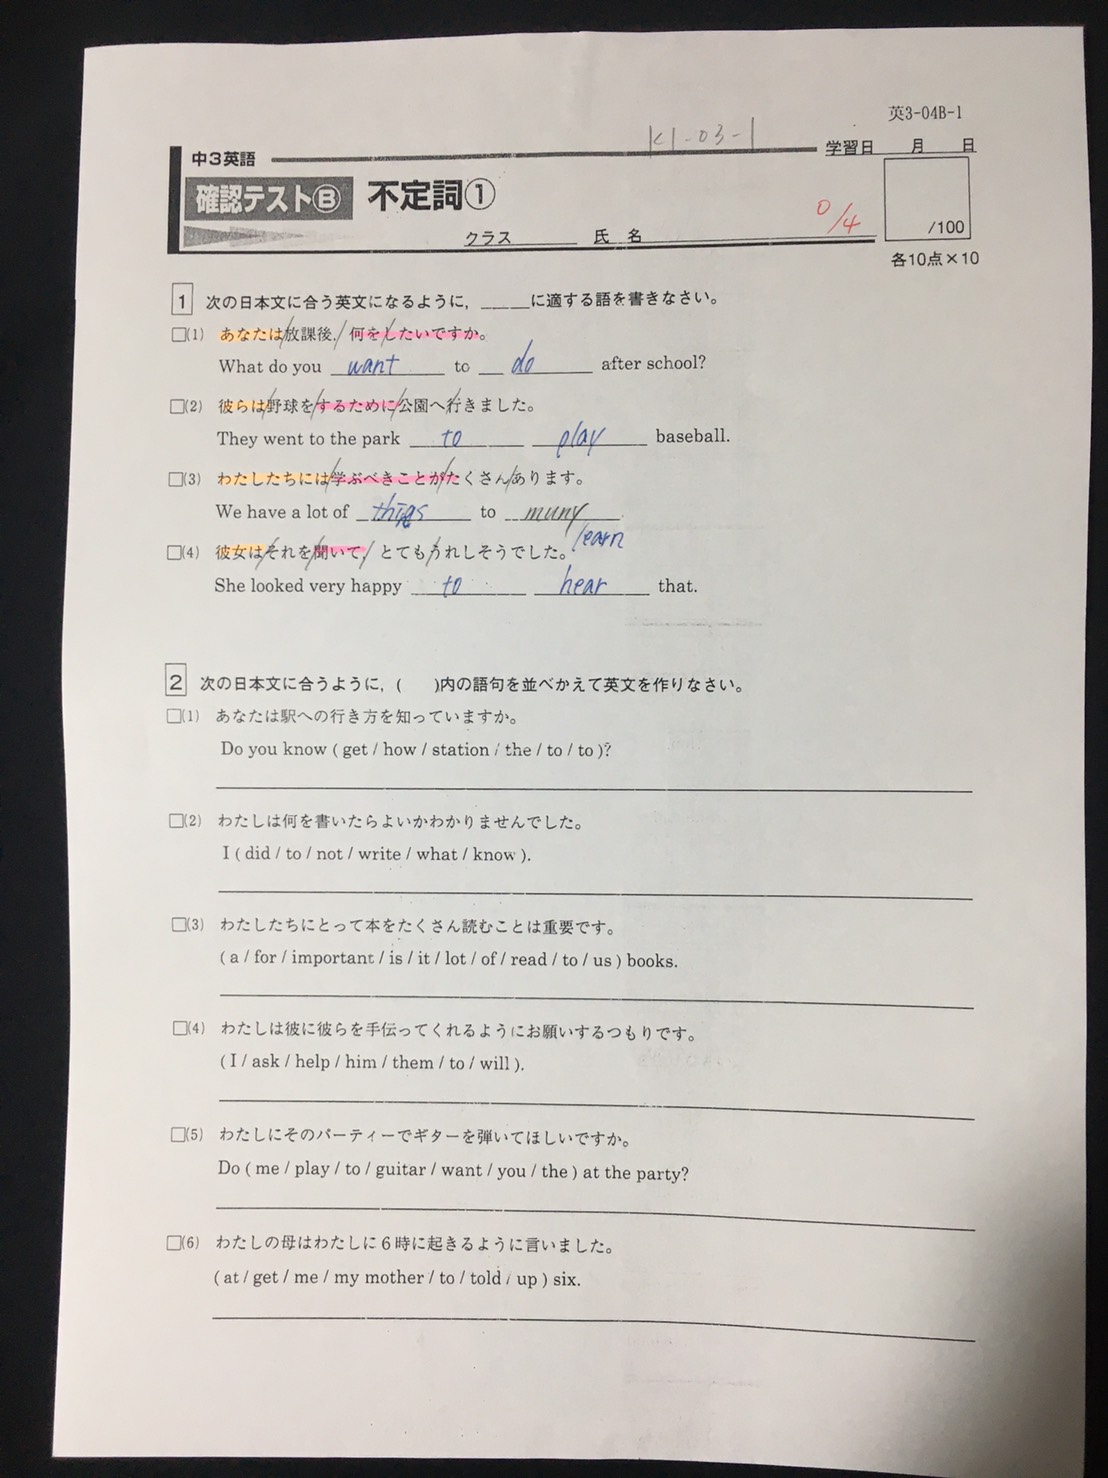 英3-04B-1
K1-03-1
中3英語
学習日 月 日
確認テストⒷ 不定詞①
0/4
/100
クラス 氏名
各10点×10
1 次の日本文に合う英文になるように，____に適する語を書きなさい。
□(1) あなたは/放課後,/何を/したいですか。
What do you want to do after school?
□(2) 彼らは/野球を/するために/公園へ/行きました。
They went to the park to play baseball.
□(3) わたしたちには/学ぶべきことが/たくさん/あります。
We have a lot of thigs to muny
learn
□(4) 彼女は/それを/聞いて,/とても/うれしそうでした。
She looked very happy to hear that.
2 次の日本文に合うように，( )内の語句を並べかえて英文を作りなさい。
□(1) あなたは駅への行き方を知っていますか。
Do you know ( get / how / station / the / to / to )?
□(2) わたしは何を書いたらよいかわかりませんでした。
I ( did / to / not / write / what / know ).
□(3) わたしたちにとって本をたくさん読むことは重要です。
( a / for / important / is / it / lot / of / read / to / us ) books.
□(4) わたしは彼に彼らを手伝ってくれるようにお願いするつもりです。
( I / ask / help / him / them / to / will ).
□(5) わたしにそのパーティーでギターを弾いてほしいですか。
Do ( me / play / to / guitar / want / you / the ) at the party?
□(6) わたしの母はわたしに6時に起きるように言いました。
( at / get / me / my mother / to / told / up ) six.